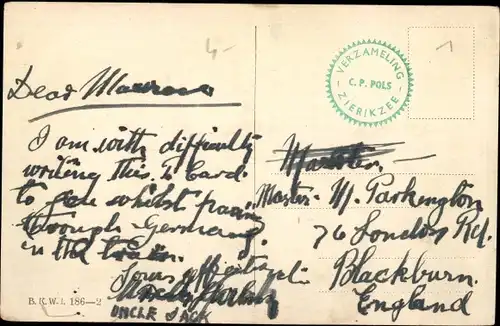 4-
1
VERZAMELING
C. P. POLS
ZIERIKZEE
Dear
I am with difficulty
writing this P. Card
to you whilst passing
through Germany
in the train.
Yours affectionately
UNCLE JACK
Master. M. Parkington
76 London Rd.
Blackburn.
England
B. K. W. I. 186-2